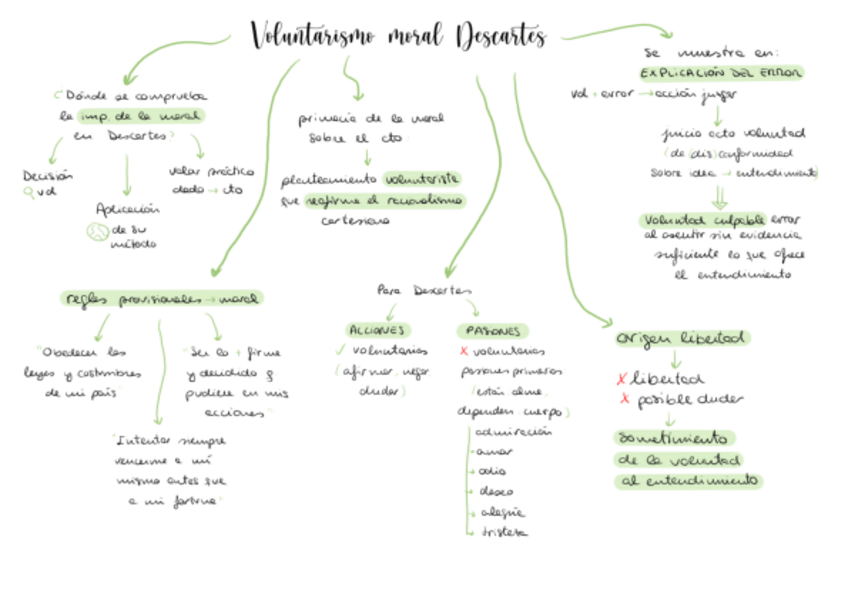 Voluntarismo moral Descartes
¿Dónde se comprueba
la imp. de la moral
en Descartes?
Decisión
vol
Aplicación
de su
método
valor práctico
dado → cto
primacía de la moral
sobre el cto
planteamiento voluntarista
que reafirma el racionalismo
cartesiano
Se muestra en:
EXPLICACIÓN DEL ERROR
vol + error → acción juzgar
juicio acto voluntad
(de (dis)conformidad
sobre idea → entendimiento)
voluntad culpable error
al asentir sin evidencia
suficiente lo que ofrece
el entendimiento
reglas provisionales → moral
"Obedecer las
leyes y costumbres
de mi país"
"Intentar siempre
vencerme a mí
mismo antes que
a mi fortuna"
"Ser lo + firme
y decidido q
pudiera en mis
acciones"
Para Descartes
ACCIONES
✓ voluntarias
(afirmar, negar
dudar)
PASIONES
✗ voluntarias
pasiones primarias
(están alma,
dependen cuerpo)
admiración
amor
odio
deseo
alegría
tristeza
origen libertad
✗ libertad
✗ posible dudar
sometimiento
de la voluntad
al entendimiento